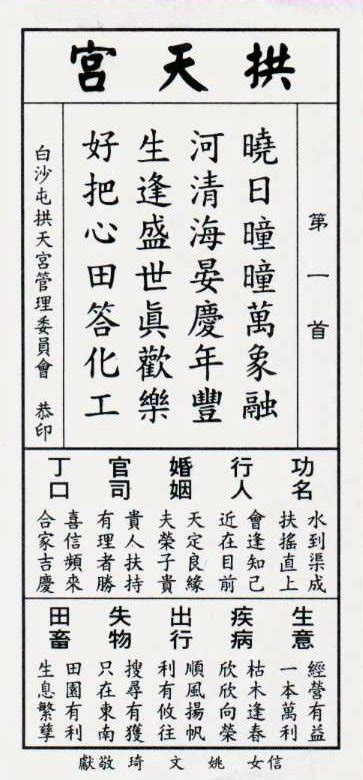 拱天宮
第一首
曉日曈曈萬象融
河清海晏慶年豐
生逢盛世眞歡樂
好把心田答化工
白沙屯拱天宮管理委員會 恭印
功名
水到渠成
扶搖直上
行人
會逢知己
近在目前
婚姻
天定良緣
夫榮子貴
官司
貴人扶持
有理者勝
丁口
喜信頻來
合家吉慶
生意
經營有益
一本萬利
疾病
枯木逢春
欣欣向榮
出行
順風揚帆
利有攸往
失物
搜尋有獲
只在東南
田畜
田園有利
生息繁孳
信女 姚文琦 敬獻